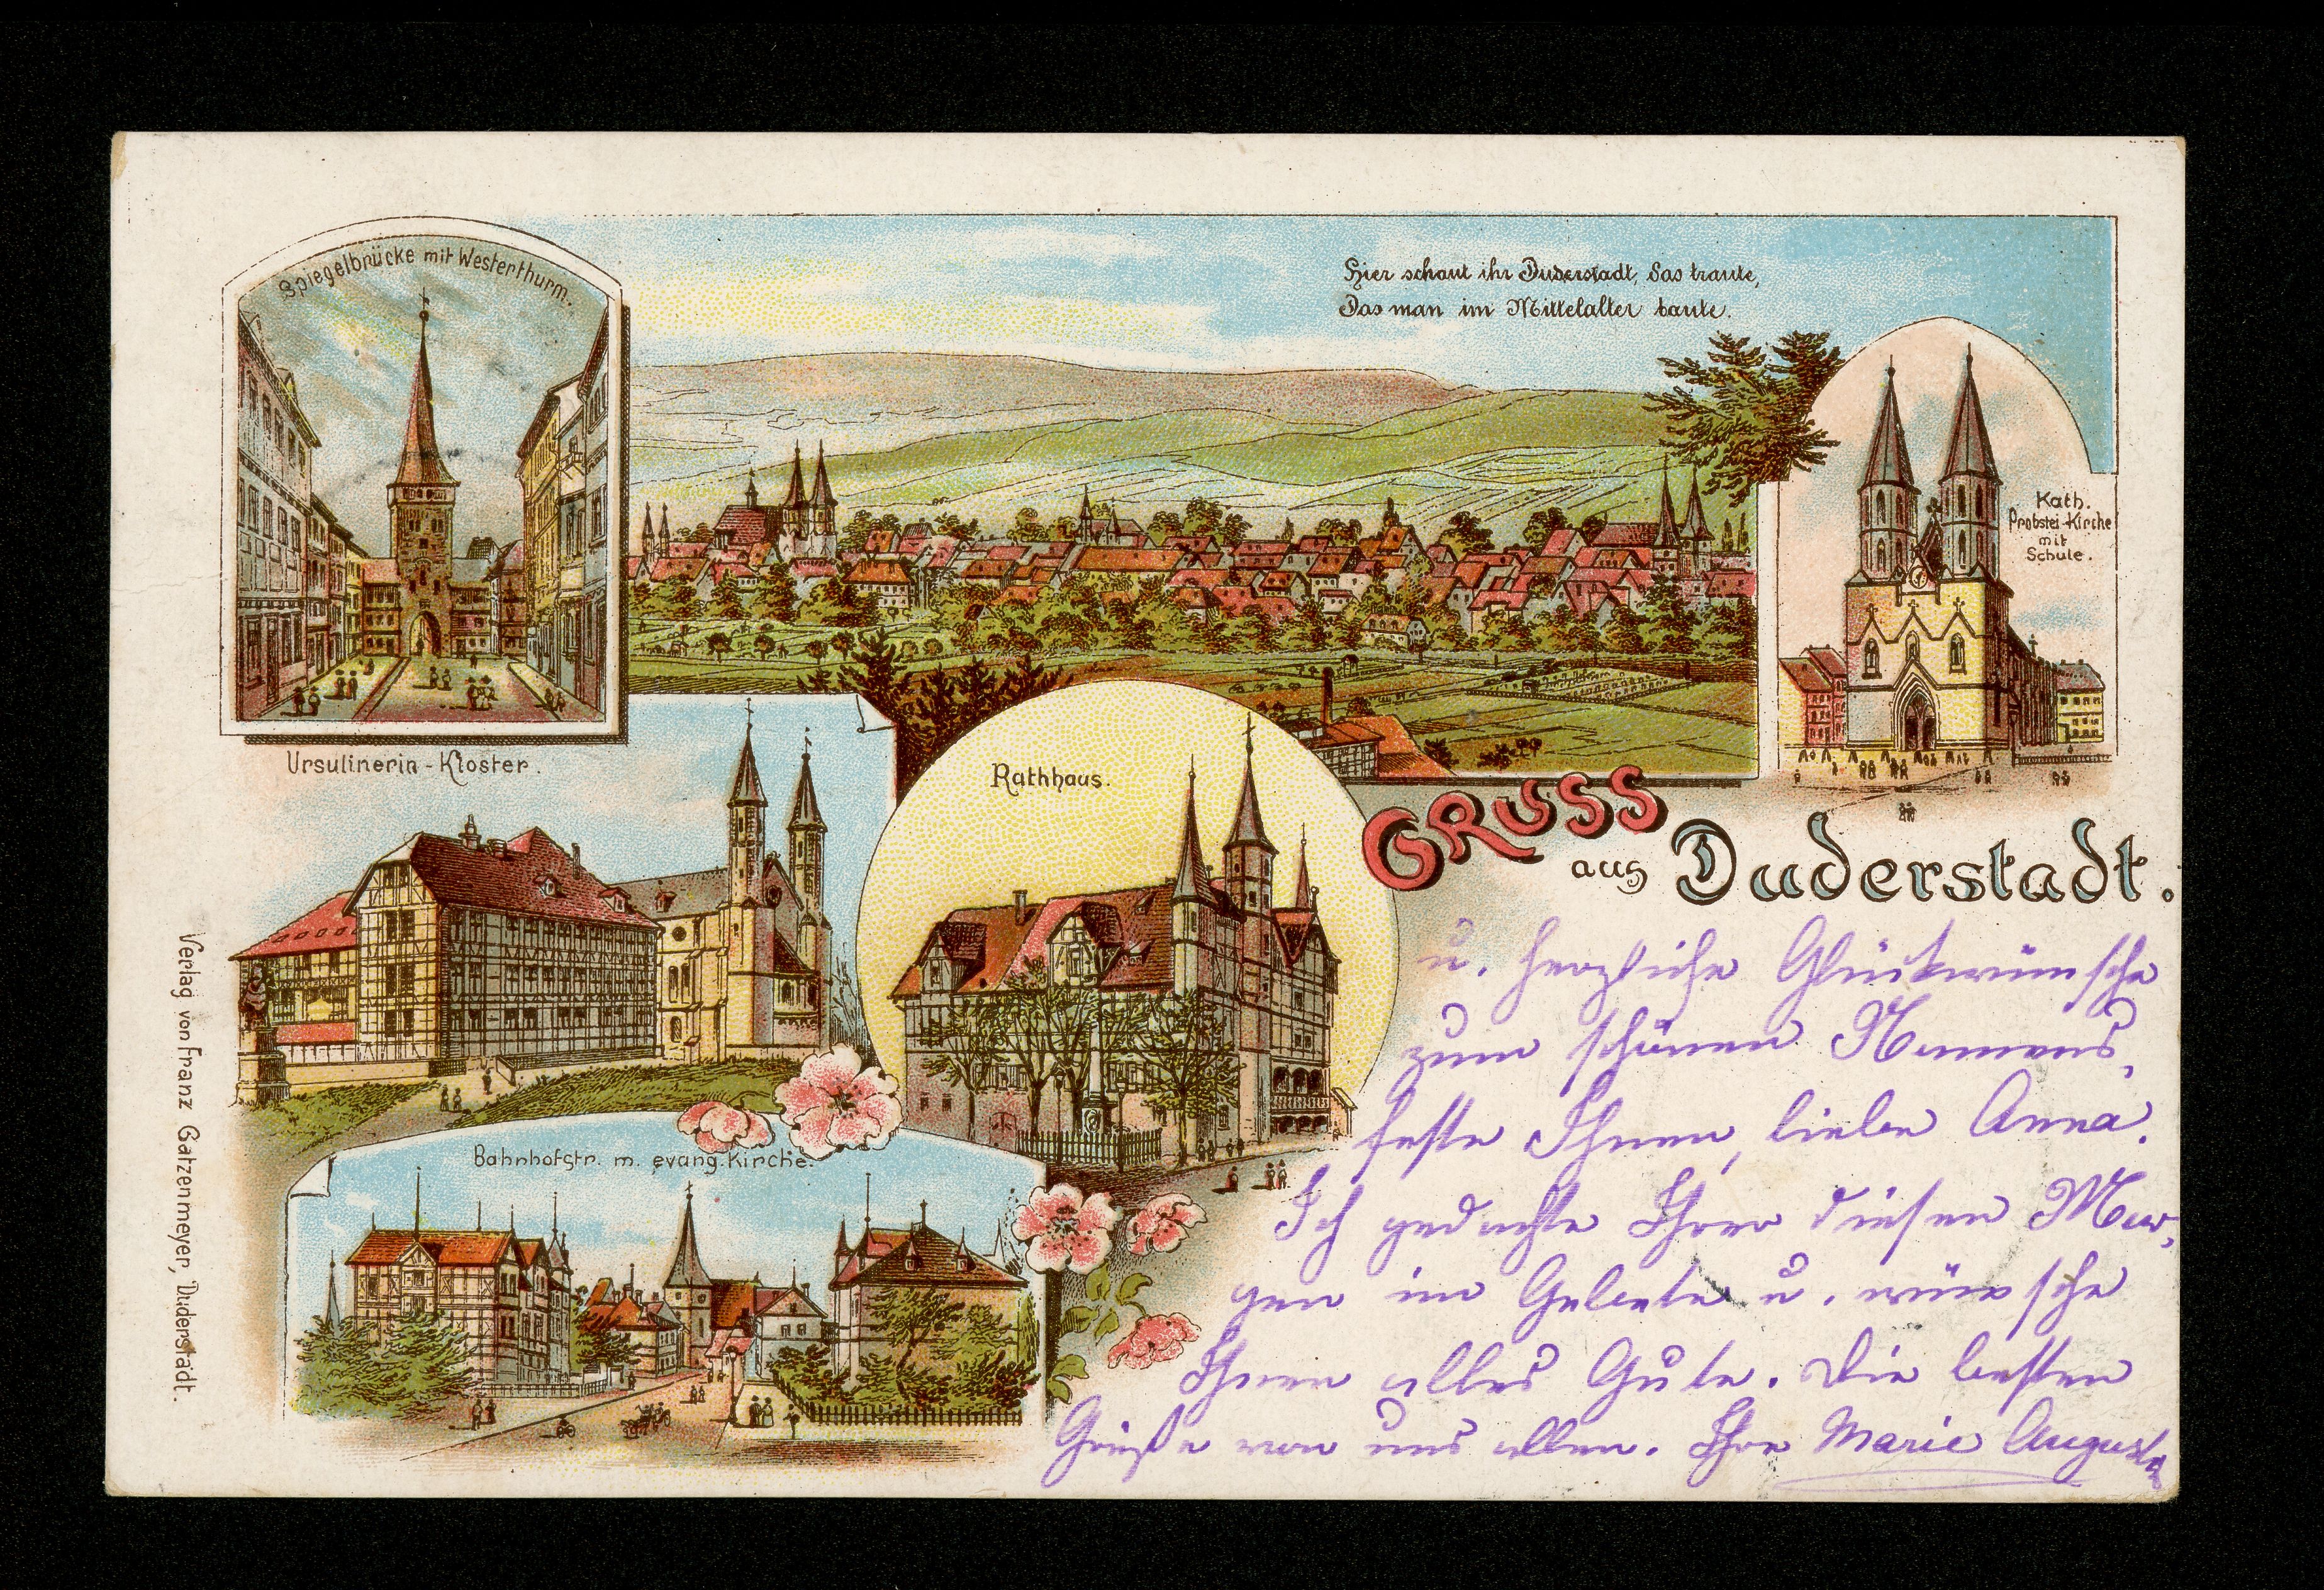 Spiegelbrücke mit Westerthurm.
Hier schaut ihr Duderstadt, das traute,
Das man im Mittelalter baute.
Kath.
Probstei-Kirche
mit
Schule.
Ursulinerin-Kloster.
Rathhaus.
GRUSS
aus Duderstadt.
Bahnhofstr. m. evang. Kirche.
Verlag von Franz Gatzenmeyer, Duderstadt.
u. herzliche Glückwünsche
zum schönen Namens,
feste Ihnen, liebe Anna.
Ich gedachte Ihrer diesen Mor,
gen im Gebete u. wünsche
Ihnen alles Gute. Die besten
Grüße von uns allen. Ihre Marie Auguste